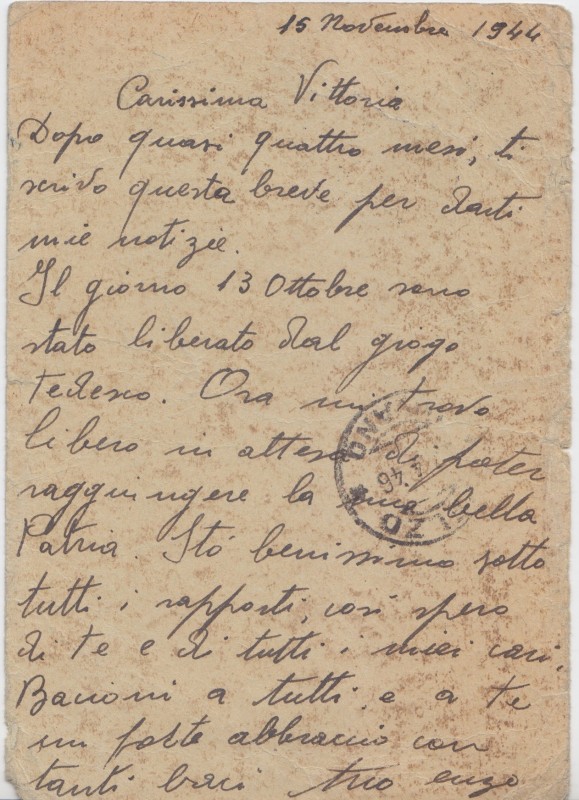 15 Novembre 1944
Carissima Vittoria
Dopo quasi quattro mesi, ti
scrivo questa breve per darti
mie notizie.
Il giorno 13 Ottobre sono
stato liberato dal giogo
Tedesco. Ora mi trovo
libero in attesa di poter
raggiungere la mia bella
Patria Stó benissimo sotto
tutti i rapporti, così spero
di te e di tutti i miei cari.
Bacioni a tutti e a te
un forte abbraccio con
tanti baci tuo enzo